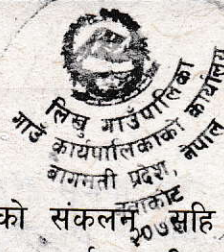 लिखु गाउँपालिका
गाउँ कार्यपालिकाको कार्यालय
बागमती प्रदेश, नेपाल
को संकलन, सहि